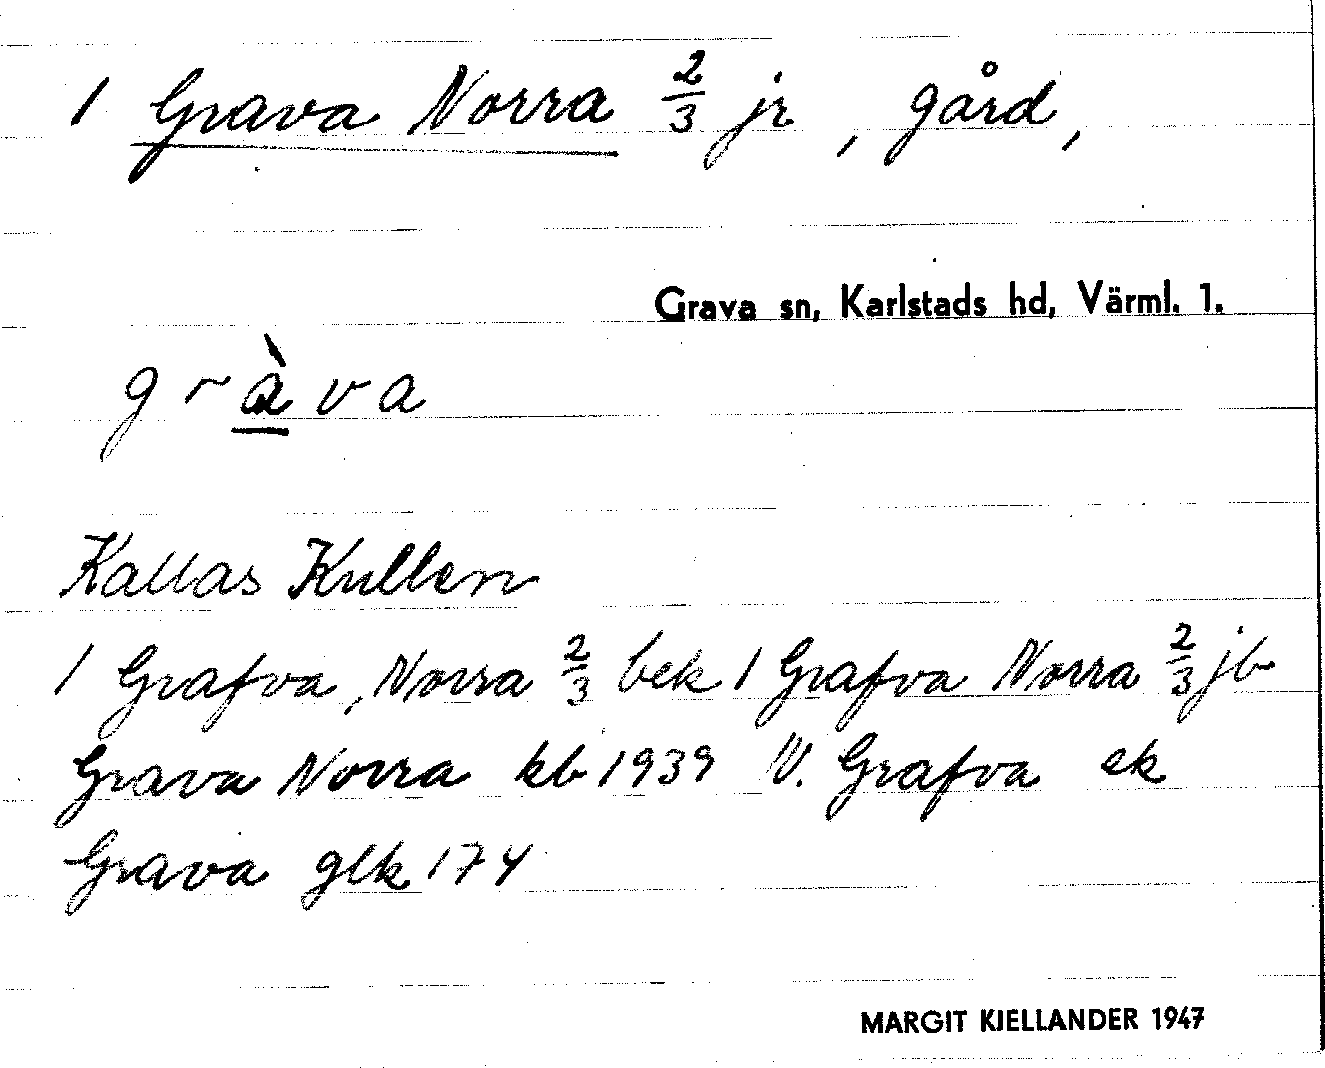 1 Grava Norra 2/3 jr, gård,
Grava sn, Karlstads hd, Värml. 1.
gràva
Kallas Kullen
1 Grafva, Norra 2/3 bek 1 Grafva Norra 2/3 jb
Grava Norra kb 1939 N. Grafva ek
Grava glk 174
MARGIT KJELLANDER 1947